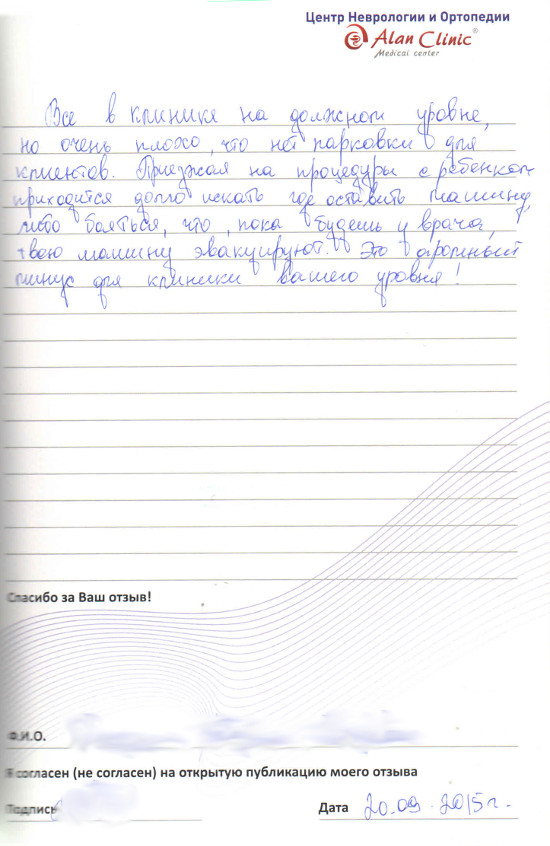 Центр Неврологии и Ортопедии
Alan Clinic®
Medical center
Все в клинике на должном уровне,
но очень плохо, что нет парковки для
клиентов. Приезжая на процедуры с ребенком
приходится долго искать где оставить машину,
либо бояться, что, пока будешь у врача,
твою машину эвакуируют. Это огромный
минус для клиники вашего уровня!
Спасибо за Ваш отзыв!
Ф.И.О.
Я согласен (не согласен) на открытую публикацию моего отзыва
Подпись
Дата 20.09.2015г.